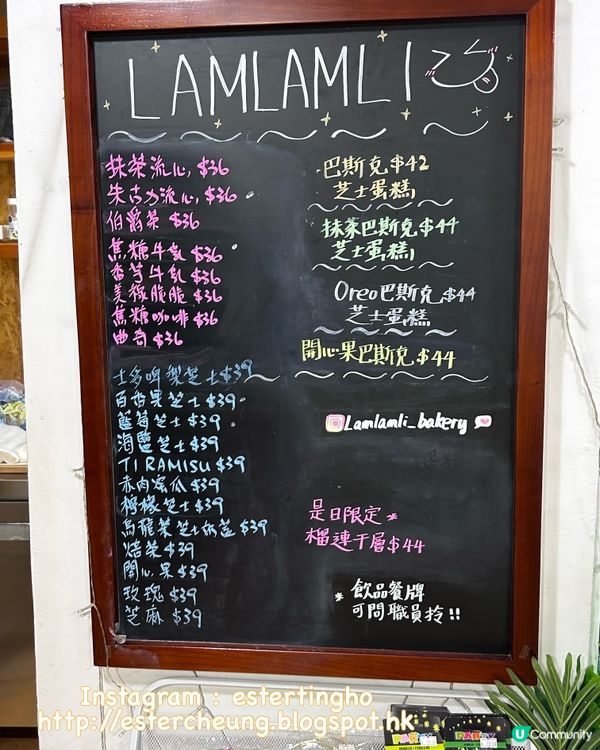 LAMLAMLI
抹茶流心, $36
朱古力流心, $36
伯爵茶 $36
焦糖牛乳 $36
香芋牛乳 $36
美祿脆脆 $36
焦糖咖啡 $36
曲奇 $36
士多啤梨芝士$39
百香果芝士 $39
藍莓芝士 $39
海鹽芝士 $39
TIRAMISU $39
赤肉蜜瓜 $39
檸檬芝士 $39
烏龍茶芝士奶蓋 $39
焙茶 $39
開心果 $39
玫瑰 $39
芝麻 $39
巴斯克 $42
芝士蛋糕
抹茶巴斯克 $44
芝士蛋糕
Oreo巴斯克 $44
芝士蛋糕
開心果巴斯克 $44
Lamlamli_bakery
是日限定*
榴連千層 $44
* 飲品餐牌
可問職員拎!!
Instagram : estertingho
http://estercheung.blogspot.hk
PARTY
PARTY
U Community